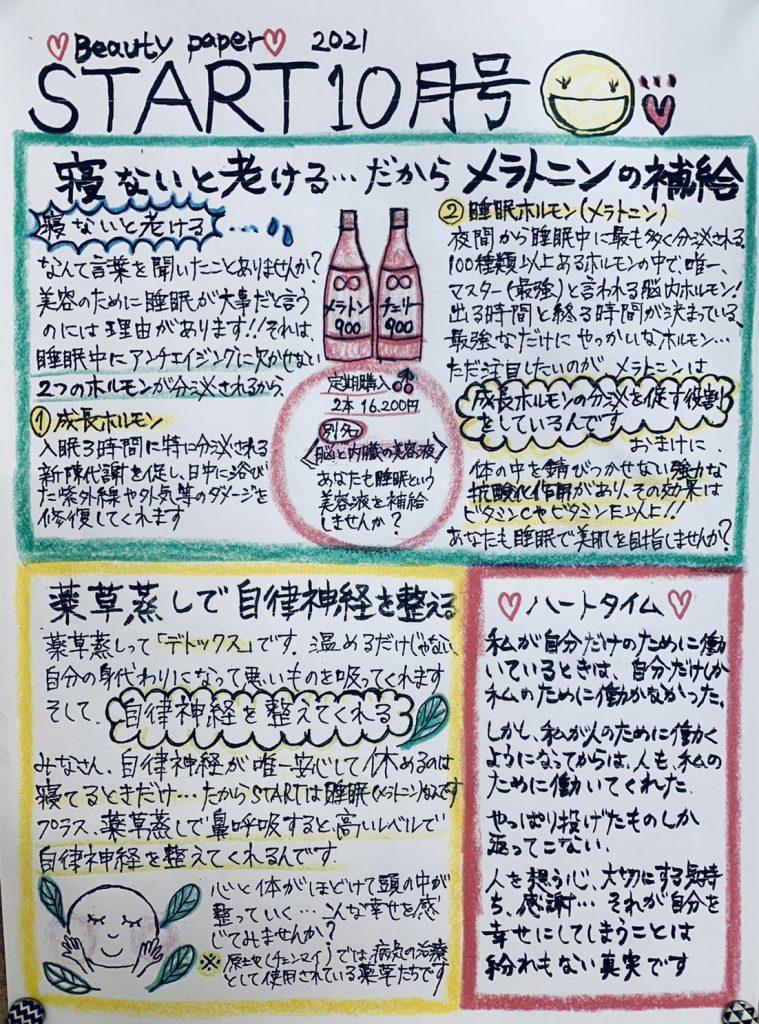 ♡Beauty paper♡ 2021
START10月号
寝ないと老ける…だからメラトニンの補給
寝ないと老ける…
なんて言葉を聞いたことありませんか?
美容のために睡眠が大事だと言う
のには理由があります!!それは、
睡眠中にアンチエイジングに欠かせない
2つのホルモンが分泌されるから
①成長ホルモン
入眠3時間に特に分泌される
新陳代謝を促し、日中に浴び
た紫外線や外気等のダメージを
修復してくれます
メラトン
900
チェリー
900
定期購入
2本 16.200円
別名
脳と内臓の美容液
あなたも睡眠という
美容液を補給
しませんか?
②睡眠ホルモン(メラトニン)
夜間から睡眠中に最も多く分泌される
100種類以上あるホルモンの中で、唯一、
マスター(最強)と言われる脳内ホルモン!
出る時間と終る時間が決まっている、
最強なだけにやっかいなホルモン…
ただ注目したいのがメラトニンは
成長ホルモンの分泌を促す役割
をしているんです
おまけに、
体の中を錆びつかせない強力な
抗酸化作用があり、その効果は
ビタミンCやビタミンE以上!!
あなたも睡眠で美肌を目指しませんか?
薬草蒸しで自律神経を整える
薬草蒸しって「デトックス」です。温めるだけじゃない、
自分の身代わりになって悪いものを吸ってくれます
そして、自律神経を整えてくれる
みなさん、自律神経が唯一安心して休めるのは
寝てるときだけ…だからSTARTは睡眠(メラトニン)なんです
プラス、薬草蒸しで鼻呼吸すると、高いレベルで
自律神経を整えてくれるんです.
心と体がほどけて頭の中が
整っていく…そんな幸せを感
じてみませんか?
※原土地(チェンマイ)では、病気の治療
として使用されている薬草たちです
♡ハートタイム♡
私が自分だけのために働
いているときは、自分だけしか
私のために働かなかった。
しかし、私が人のために働く
ようになってからは、人も、私の
ために働いてくれた.
やっぱり投げたものしか
返ってこない.
人を想う心、大切にする気持
ち、感謝…それが自分を
幸せにしてしまうことは
紛れもない真実です